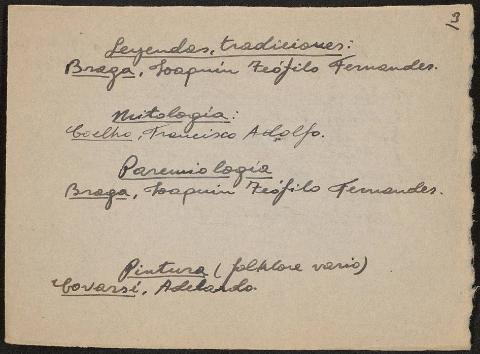 13
Leyendas, tradiciones:
Braga, Joaquín Teófilo Fernandes.
Mitología:
Coelho, Francisco Adolfo.
Paremiología
Braga, Joaquín Teófilo Fernandes.
Pintura (folklore vario)
Covarsí, Adelardo.